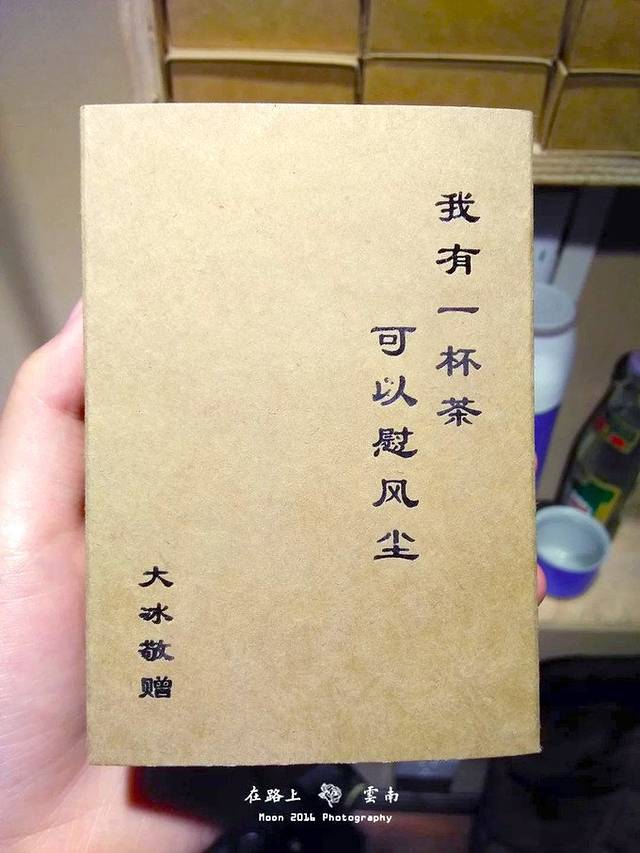 我有一杯茶
可以慰风尘
大冰敬赠
在路上 雲南
Moon 2016 Photography